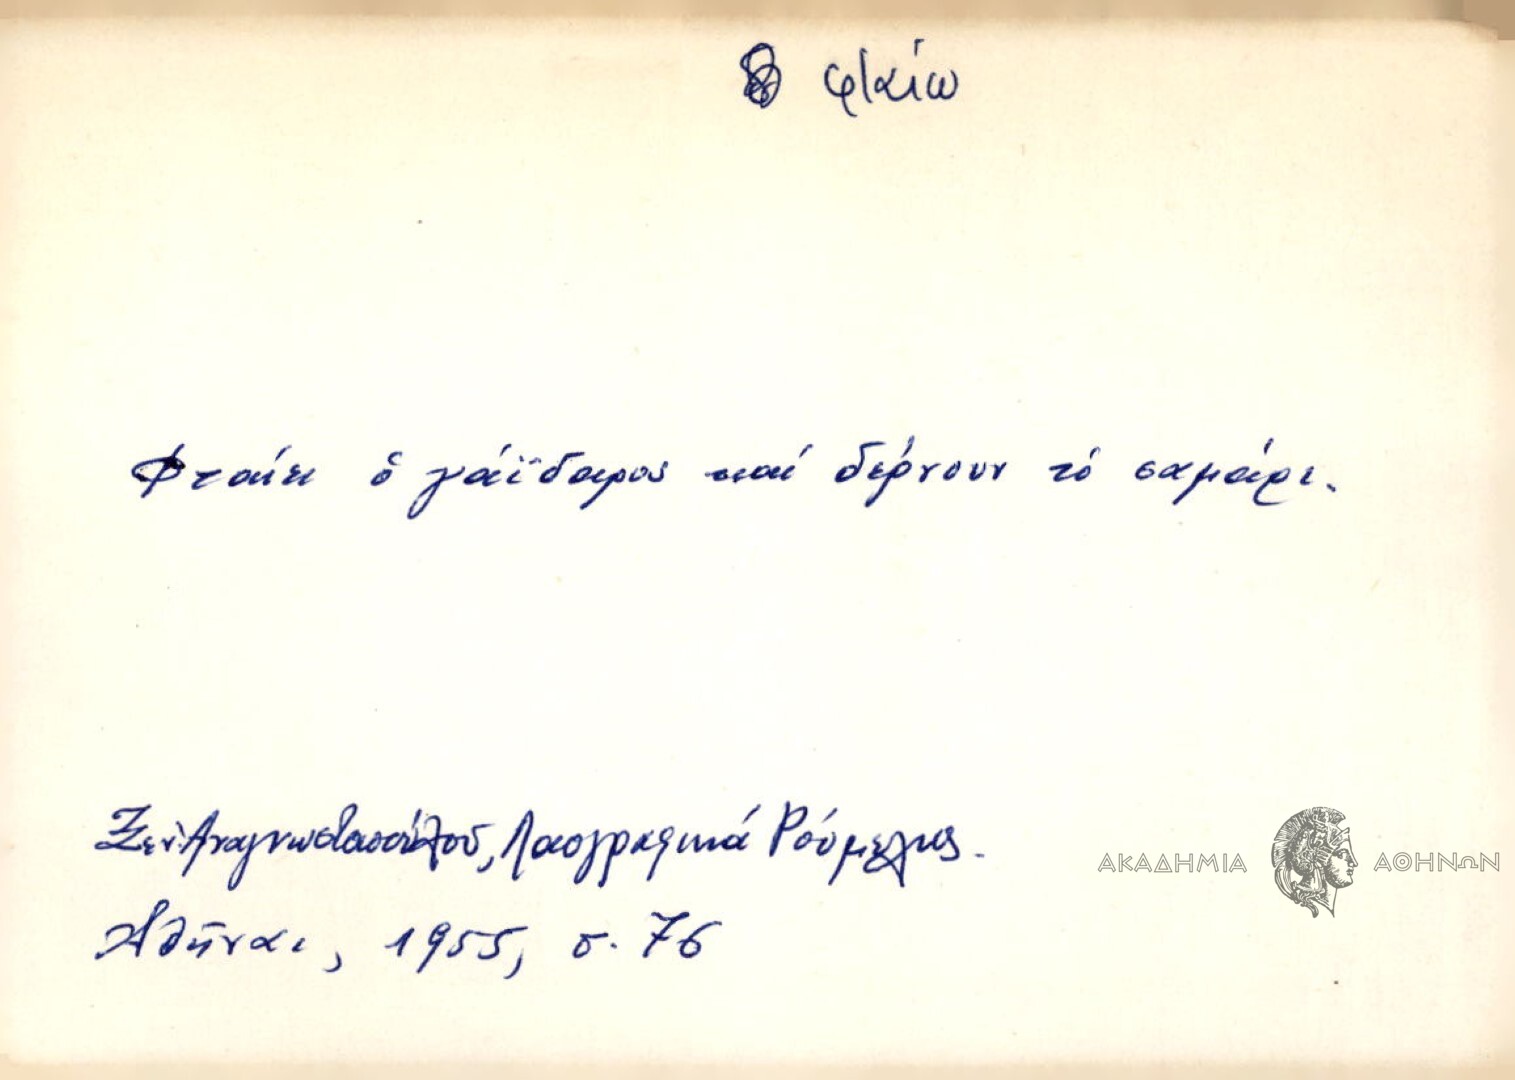 φταίω
Φταίει ὁ γάϊδαρος καί δέρνουν τό σαμάρι.
Ξεν. Ἀναγνωστοπούλου, Λαογραφικά Ρούμελης.
Ἀθῆναι, 1955, σ. 76
ΑΚΑΔΗΜΙΑ ΑΘΗΝΩΝ